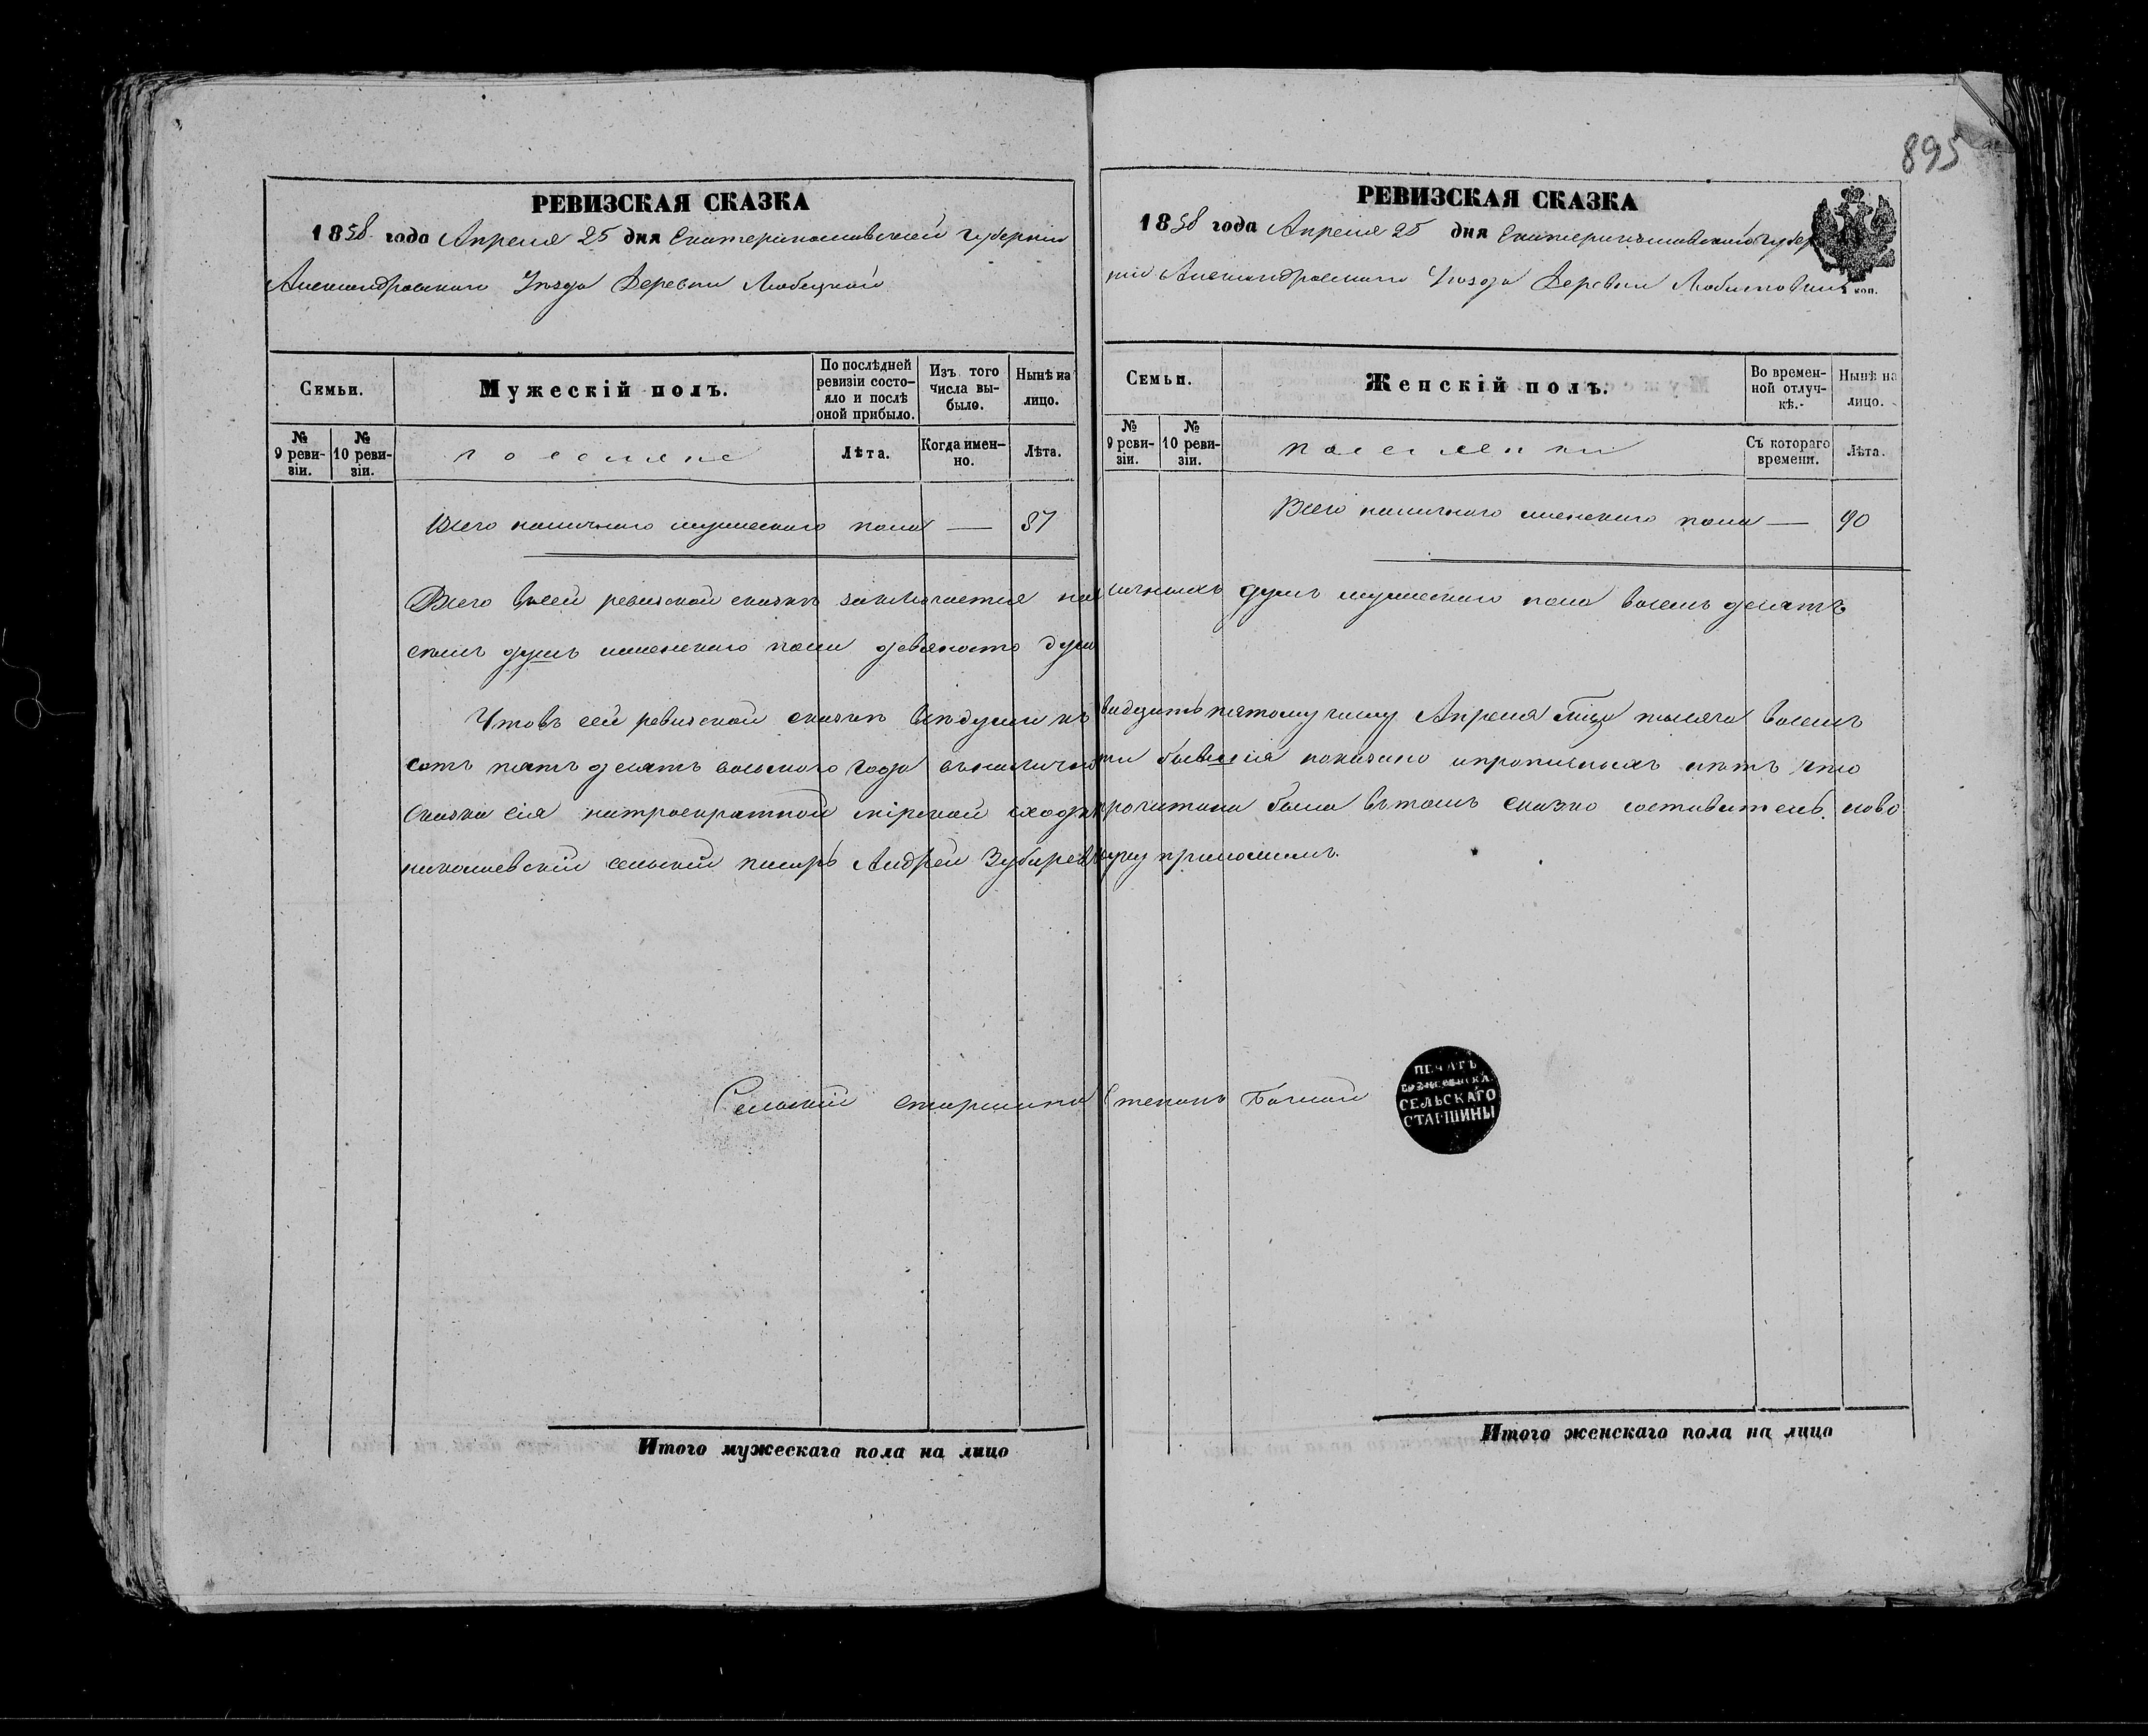 895
РЕВИЗСКАЯ СКАЗКА
1858 года Апреля 25 дня Екатеринославской губернiи
Александровскаго Уѣзда Деревни Любицкой
Семьи.
Мужескій полъ.
По послѣдней ревизіи состояло и послѣ оной прибыло.
Изъ того числа выбыло.
Нынѣ на лицо.
№ 9 ревизіи.
№ 10 ревизіи.
поселяне
Лѣта.
Когда именно.
Лѣта.
Всего наличнаго мужескаго пола — 87
РЕВИЗСКАЯ СКАЗКА
1858 года Апреля 25 дня Екатеринославской губер
ніи Александровскаго Уѣзда Деревни
коп.
Семьи.
Женскій полъ.
Во временной отлучкѣ.
Нынѣ на лицо.
№ 9 ревизіи.
№ 10 ревизіи.
поселенки
Съ котораго времени.
Лѣта.
Всего наличнаго женскаго пола — 90
Всего всей ревизской сказкѣ заключается наличныхъ душъ мужескаго пола восемь десятъ
семь душъ женскаго пола девяносто душъ
Что въ сей ревизской сказкѣ всѣ души къ двадцать пятому числу Апреля тысяча восемь
сотъ пять десятъ восьмого года въ наличности бывшія показано и прописныхъ нѣтъ что
сказка сія на троекратной мірской сходкѣ прочитана была въ томъ сказко составитель ново
николаевскій сельскій писарь Андрей Зубарев руку приложилъ.
Сельскій старшина Степанъ
ПЕЧАТЬ
СЕЛЬСКАГО
СТАРШИНЫ
Итого мужескаго пола на лицо
Итого женскаго пола на лицо